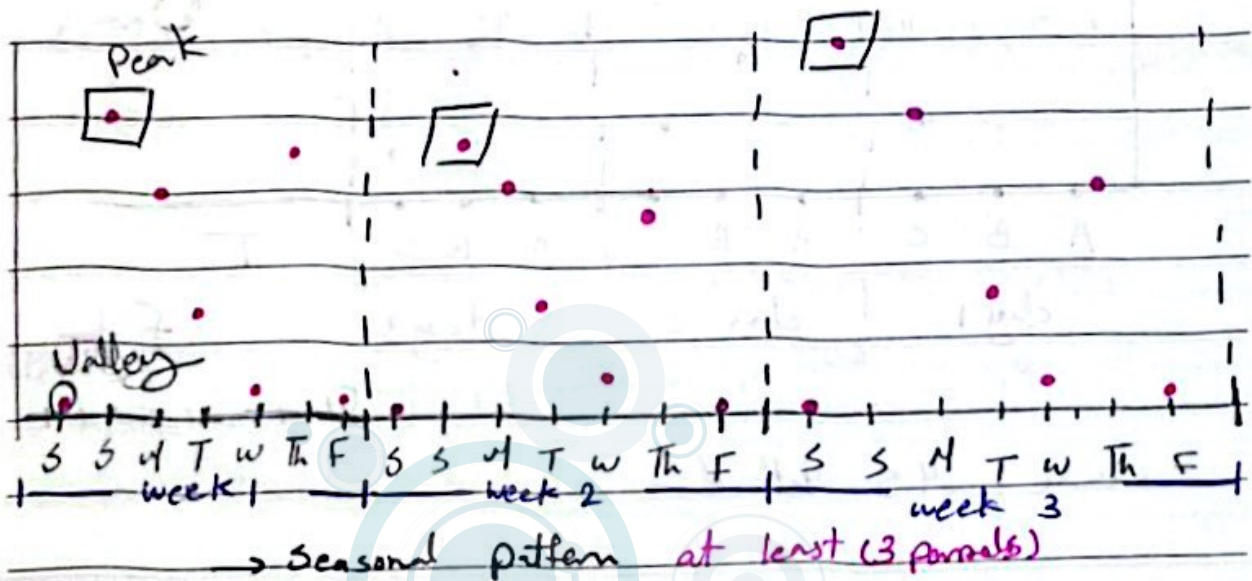 Peak
Valley
S S M T W Th F S S M T W Th F S S M T W Th F
week 1 week 2 week 3
→ Seasonal pattern at least (3 periods)